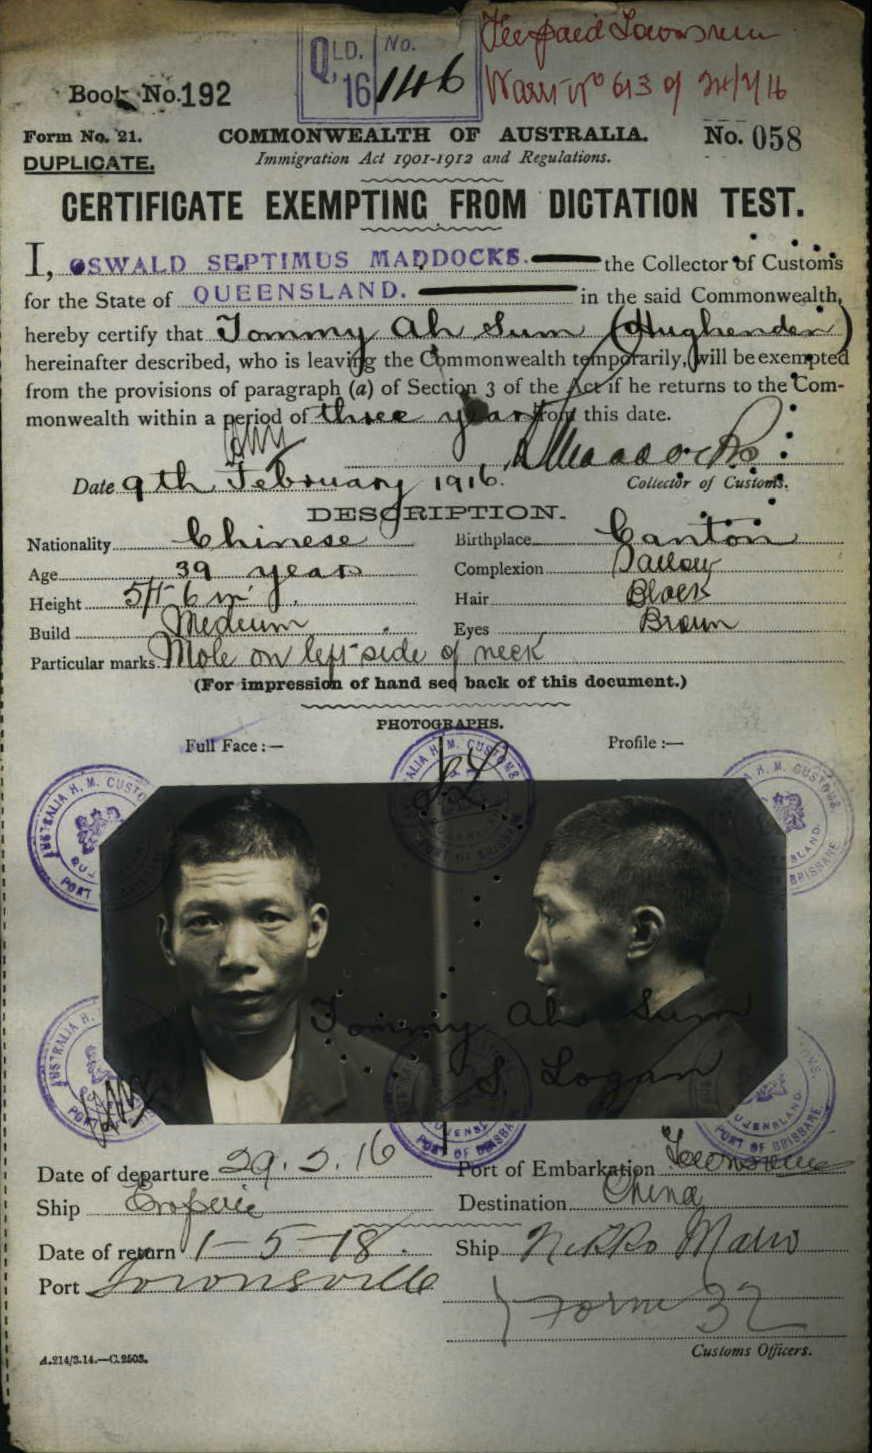 QLD. No.
'16 146
Fee paid Townsville
Warr No 613 of 24/2/16
Book No. 192
Form No. 21. COMMONWEALTH OF AUSTRALIA. No. 058
DUPLICATE. Immigration Act 1901-1912 and Regulations.
CERTIFICATE EXEMPTING FROM DICTATION TEST.
I, OSWALD SEPTIMUS MADDOCKS. the Collector of Customs
for the State of QUEENSLAND. in the said Commonwealth,
hereby certify that Tommy Ah Sum (Hughenden)
hereinafter described, who is leaving the Commonwealth temporarily, will be exempted
from the provisions of paragraph (a) of Section 3 of the Act if he returns to the Com-
monwealth within a period of three years from this date.
Maddocks
Date 9th February 1916. Collector of Customs.
DESCRIPTION.
Nationality Chinese Birthplace Canton
Age 39 years Complexion Sallow
Height 5ft 6in Hair Black
Build Medium Eyes Brown
Particular marks. Mole on left side of neck
(For impression of hand see back of this document.)
PHOTOGRAPHS.
Full Face :— Profile :—
AUSTRALIA H. M. CUSTOMS QUEENSLAND. PORT OF BRISBANE
Tommy Ah Sum
S Logan
Date of departure 29.2.16 Port of Embarkation Townsville
Ship Destination China
Date of return 1-5-18. Ship Nikko Maru
Port Townsville
Form 32
A.214/3.14.—C.2503. Customs Officers.